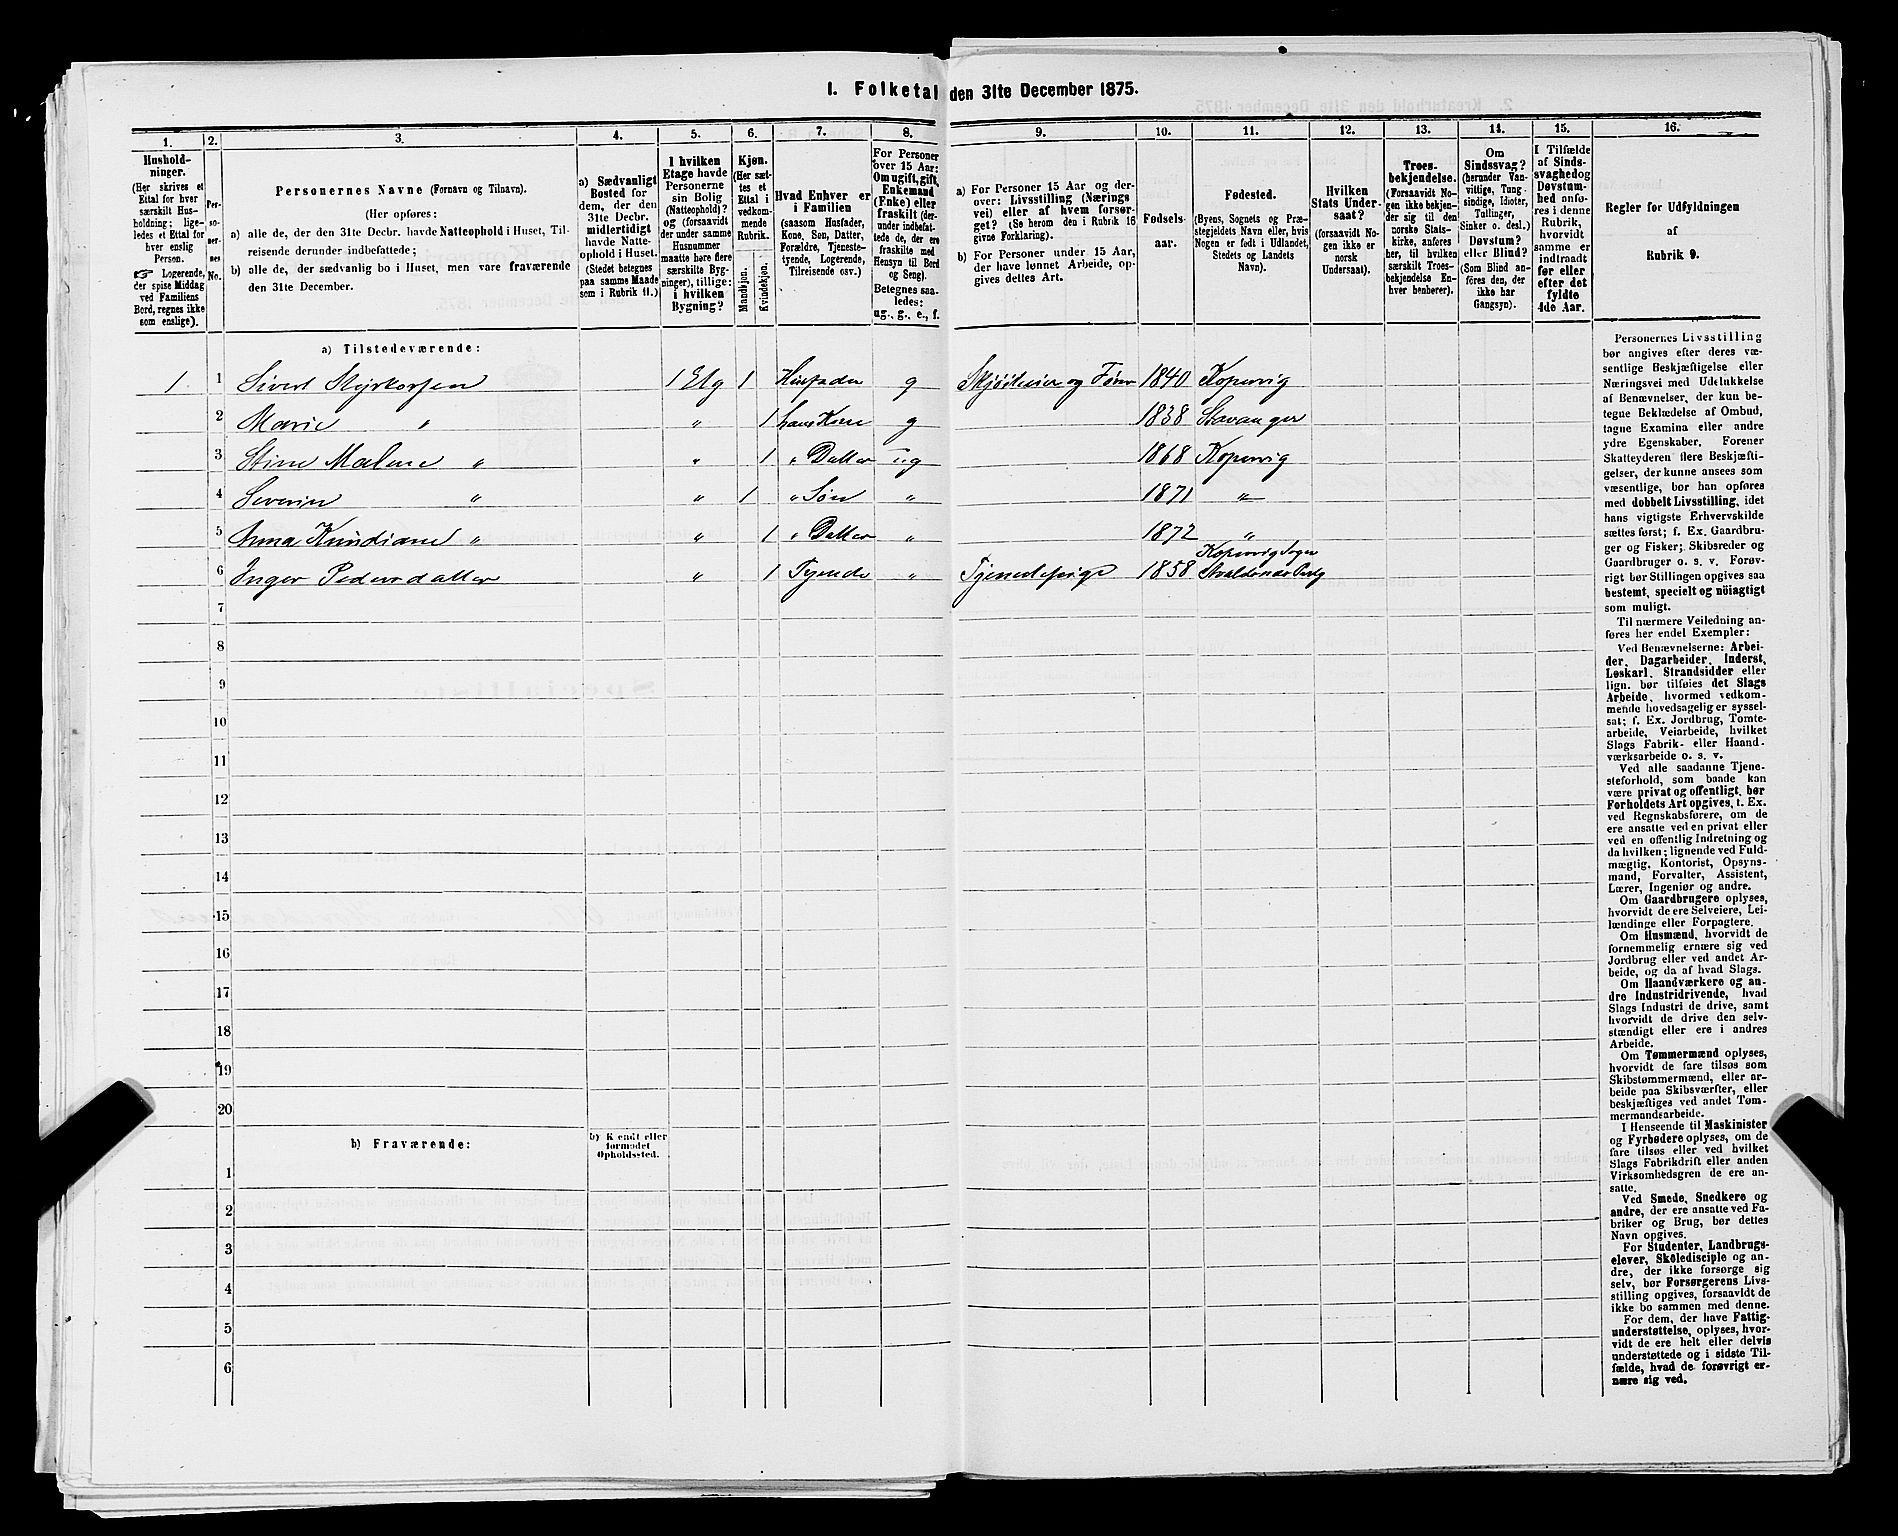 1. Folketal den 31te December 1875.
1. 2. 3. 4. 5. 6. 7. 8. 9. 10. 11. 12. 13. 14. 15. 16.
Hushold-
ninger.
(Her skrives et
Ettal for hver
særskilt Hus-
holdning; lige-
ledes et Ettal for
hver enslig
Person.
☞ Logerende,
der spise Middag
ved Familiens
Bord, regnes ikke
som enslige).
Per-
so-
ner-
nes
No.
Personernes Navne (Fornavn og Tilnavn).
(Her opføres:
a) alle de, der den 31te Decbr. havde Natteophold i Huset, Til-
reisende derunder indbefattede;
b) alle de, der sædvanlig bo i Huset, men vare fraværende
den 31te December.
a) Sædvanligt
Bosted for
dem, der den
31te Decbr.
midlertidigt
havde Natte-
ophold i Huset.
(Stedet betegnes
paa samme Maade
som i Rubrik 11.)
I hvilken
Etage havde
Personerne
sin Bolig
(Natteophold)?
og (forsaavidt
der under samme
Husnummer
maatte høre flere
særskilte Byg-
ninger), tillige:
i hvilken
Bygning?
Kjøn.
(Her sæt-
tes et
Ettal i
vedkom-
mende
Rubrik.
Mandkjøn.
Kvindekjøn.
Hvad Enhver er
i Familien
(saasom Husfader,
Kone, Søn, Datter,
Forældre, Tjeneste-
tyende, Logerende,
Tilreisende osv.)
For Personer
over 15 Aar:
Om ugift, gift,
Enkemand
(Enke) eller
fraskilt (der-
under indbefat-
tede de, der ere
fraskilte med
Hensyn til Bord
og Seng).
Betegnes saa-
ledes:
ug., g., e., f.
a) For Personer 15 Aar og der-
over: Livsstilling (Nærings
vei) eller af hvem forsør-
get? (Se herom den i Rubrik 16
givne Forklaring).
b) For Personer under 15 Aar,
der have lønnet Arbeide, op-
gives dettes Art.
Fødsels-
aar.
Fødested.
(Byens, Sognets og Præ-
stegjeldets Navn eller, hvis
Nogen er født i Udlandet,
Stedets og Landets
Navn).
Hvilken
Stats Under-
saat?
(forsaavidt No-
gen ikke er
norsk
Undersaat).
Troes-
bekjendelse.
(Forsaavidt No-
gen ikke bekjen-
der sig til den
norske Stats-
kirke, anføres
her, til hvilken
særskilt Troes-
bekjendelse En-
hver henhører).
Om
Sindssvag?
(herunder Van-
vittige, Tung-
sindige, Idioter,
Tullinger,
Sinker o. desl.)
Døvstum?
eller Blind?
(Som Blind an-
føres den, der
ikke har
Gangsyn).
I Tilfælde
af Sinds-
svaghed og
Døvstum-
hed anfø-
res i denne
Rubrik,
hvorvidt
samme er
indtraadt
før eller
efter det
fyldte
4de Aar.
Regler for Udfyldningen
af
Rubrik 9.
a) Tilstedeværende:
1 1 Sivert Styrkorsen 1 Etg 1 Husfader g Skjøiteeier og Fører 1840 Kopervig
2 Marie " " 1 hans Kone g 1838 Stavanger
3 Stine Malene " " 1 " Datter ug 1868 Kopervig
4 Severin " " 1 " Søn " 1871 "
5 Anna Kundiane " " 1 " Datter " 1872 "
6 Inger Pedersdatter " 1 Tyende " Tjenestepige 1858 Kopervig Sogn
7
8
9
10
11
12
13
14
15
16
17
18
19
20
b) Fraværende:
b) Kendt eller
formodet
Opholdssted.
1
2
3
4
5
6
Personernes Livsstilling
bør angives efter deres væ-
sentlige Beskjæftigelse eller
Næringsvei med Udelukkelse
af Benævnelser, der kun be-
tegne Beklædelse af Ombud,
tagne Examina eller andre
ydre Egenskaber. Forener
Skatteyderen flere Beskjæfti-
gelser, der kunne ansees som
væsentlige, bør han opføres
med dobbelt Livsstilling, idet
hans vigtigste Erhvervskilde
sættes først; f. Ex. Gaardbru-
ger og Fisker; Skibsreder og
Gaardbruger o. s. v. Forøv-
rigt bør Stillingen opgives saa
bestemt, specielt og nöiagtigt
som muligt.
Til nærmere Veiledning an-
føres her endel Exempler:
Ved Benævnelserne: Arbei-
der, Dagarbeider, Inderst,
Løskarl, Strandsidder eller
lign. bør tilføies det Slags
Arbeide, hvormed vedkom-
mende hovedsagelig er syssel-
sat; f. Ex. Jordbrug, Tomte-
arbeide, Veiarbeide, hvilket
Slags Fabrik- eller Haand-
værksarbeide o. s. v.
Ved alle saadanne Tjene-
steforhold, som baade kan
være privat og offentligt, bør
Forholdets Art opgives, t. Ex.
ved Regnskabsførere, om de
ere ansatte ved en privat eller
ved en offentlig Indretning og
da hvilken; lignende ved Fuld-
mægtig, Kontorist, Opsyns-
mand, Forvalter, Assistent,
Lærer, Ingeniør og andre.
Om Gaardbrugere oplyses,
hvorvidt de ere Selveiere, Lei-
lændinge eller Forpagtere.
Om Husmænd, hvorvidt de
fornemmelig ernære sig ved
Jordbrug eller ved andet Ar-
beide, og da af hvad Slags.
Om Haandværkere og an-
dre Industridrivende, hvad
Slags Industri de drive, samt
hvorvidt de drive den selv-
stændigt eller ere i andres
Arbeide.
Om Tømmermænd oplyses,
hvorvidt de fare tilsøs som
Skibstømmermænd, eller ar-
beide paa Skibsværfter, eller
beskjæftiges ved andet Tøm-
mermandsarbeide.
I Henseende til Maskinister
og Fyrbødere oplyses, om de
fare tilsøs eller ved hvilket
Slags Fabrikdrift eller anden
Virksomhedsgren de ere an-
satte.
Ved Smede, Snedkere og
andre, der ere ansatte ved Fa-
briker og Brug, bør dettes
Navn opgives.
For Studenter, Landbrugs-
elever, Skôledisciple og an-
dre, der ikke forsørge sig
selv, bør Forsørgerens Livs-
stilling opgives, forsaavidt de
ikke bo sammen med denne.
For dem, der have Fattig-
understøttelse, oplyses, hvor-
vidt de ere helt eller delvis
understøttede og i sidste Til-
fælde, hvad de forøvrigt er-
nære sig ved.